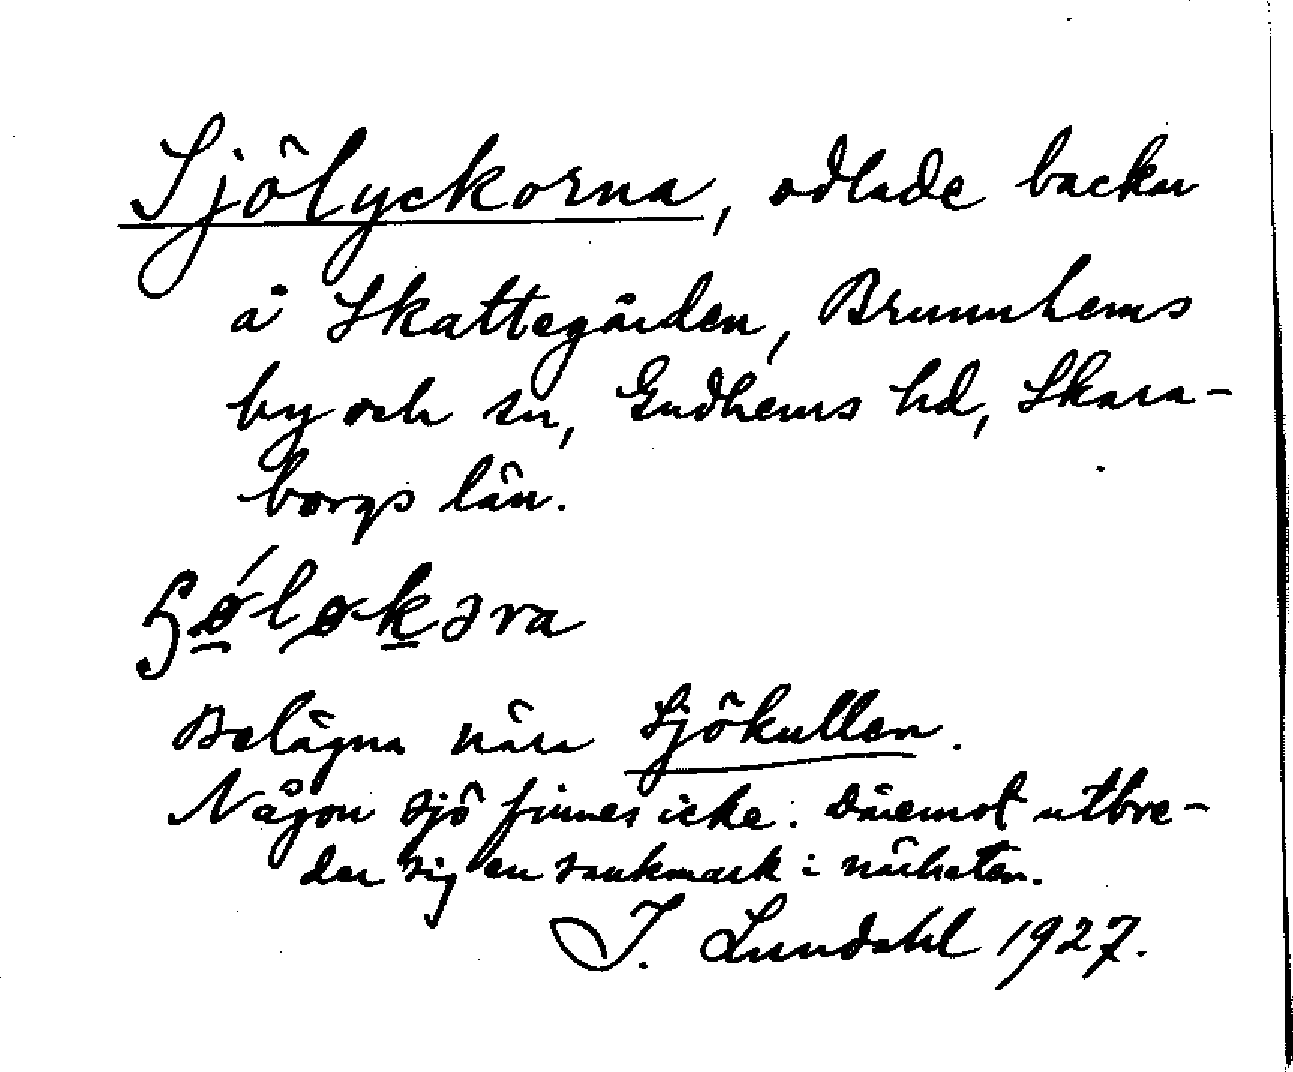 Sjölyckorna, odlade backar
å Skattegården, Brunnhems
by och sn, Gudhems hd, Skara-
borgs län.
Belägna nära Sjökullen.
Någon sjö finnes icke. Däremot utbre-
der sig en sankmark i närheten.
I. Lundahl 1927.